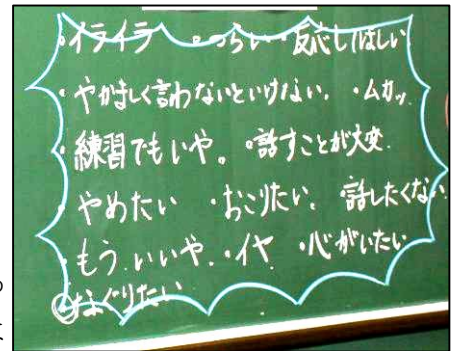 ・イライラ ・つらい ・反応してほしい
・やかましく言わないといけない。 ・ムカッ
・練習でもいや。 ・話すことが大変
・やめたい ・おこりたい。 話したくない
・もう、いいや。 ・イヤ ・心がいたい
なぐりたい